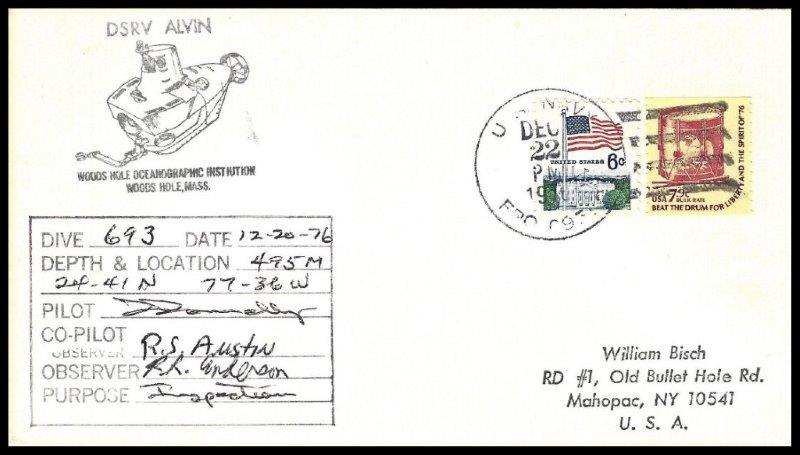 DSRV ALVIN
WOODS HOLE OCEANOGRAPHIC INSTIUTION
WOODS HOLE, MASS.
DIVE 693 DATE 12-20-76
DEPTH & LOCATION 495M
24-41 N 77-36 W
PILOT Donnelly
CO-PILOT
OBSERVER R.S. Austin
OBSERVER R.L. Anderson
PURPOSE Inspection
U.S. NAVY
DEC
22
PM
19
UNITED STATES 6c
USA 7.9c BULK RATE
BEAT THE DRUM FOR LIBERTY AND THE SPIRIT OF '76
William Bisch
RD #1, Old Bullet Hole Rd.
Mahopac, NY 10541
U. S. A.